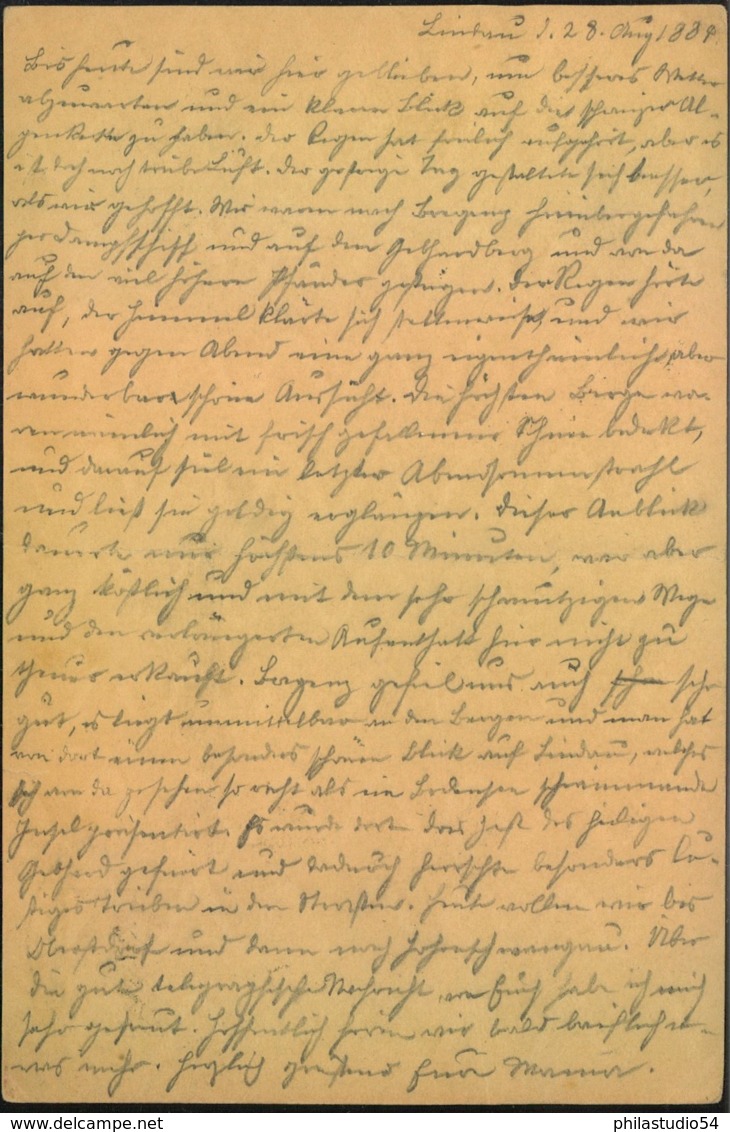 Lindau d. 28. Aug 1889.
Bis heute sind wir hier geblieben, um besseres Wetter
abzuwarten und ein klaren Blick auf die schweizer Al-
penkette zu haben. Der Regen hat freilich aufgehört, aber es
ist doch noch trübe Luft. Der gestrige Tag gestaltete sich besser,
als wir gehofft. Wir waren nach Bregenz hinübergefahren
per Dampfschiff und auf den Gebhardberg und von da
auf den viel höhern Pfänder gestiegen. Der Regen hörte
auf, der Himmel klärte sich stellenweise, und wir
hatten gegen Abend eine ganz eigenthümliche, aber
wunderbar schöne Aussicht. Die höchsten Berge wa-
ren nämlich mit frisch gefallenem Schnee bedeckt,
und darauf fiel ein letzter Abendsonnenstrahl
und ließ sie goldig erglänzen. Dieser Anblick
dauerte nur höchstens 10 Minuten, war aber
ganz köstlich und mit dem sehr schmutzigen Wege
und den verlängerten Aufenthalt hier nicht zu
theuer erkauft. Bregenz gefiel uns auch sehr
gut, es liegt unmittelbar an den Bergen und man hat
von dort einen besonders schönen Blick auf Lindau, welches
sich von da gesehen so recht als im Bodensee schwimmende
Insel präsentirt. Es wurde dort das Fest des heiligen
Gebhard gefeiert und dadurch herrschte besonders lu-
stiges Treiben in den Strassen. Heute wollen wir bis
Oberstdorf und dann nach Hohenschwangau. Über
die gute telegraphische Nachricht von Euch habe ich mich
sehr gefreut. Hoffentlich hören wir bald brieflich et-
was mehr. Herzlich grüßend Eure Mama.
philastudio54